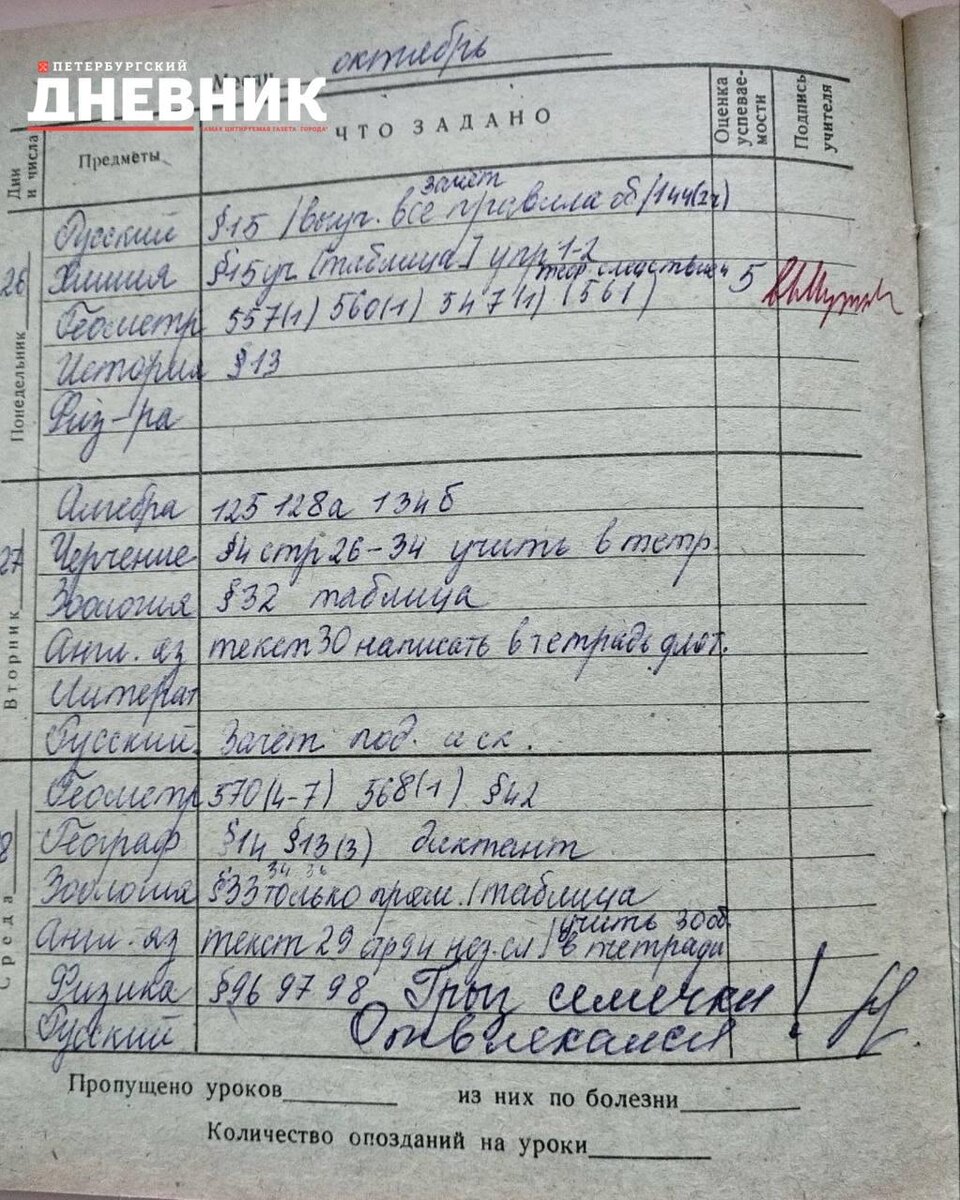 ПЕТЕРБУРГСКИЙ
ДНЕВНИК
САМАЯ ЦИТИРУЕМАЯ ГАЗЕТА ГОРОДА
Месяц октябрь
Дни и числа
Предметы
ЧТО ЗАДАНО
Оценка успевае-
мости
Подпись учителя
Понедельник 26
зачёт
Русский §15 /выуч. все правила 144(2ч)
Химия §15 уч [таблица] упр 1-2
теор. следствием 5
Геометр 557(1) 560(1) 547(1) (561)
История §13
Физ-ра
Вторник 27
Алгебра 125 128а 134б
Черчение §4 стр 26-34 учить в тетр.
Зоология §32 таблица
Англ. яз текст 30 написать в тетрадь
Литерат
Русский Зачёт под. и ск.
Среда 8
Геометр 570(4-7) 568(1) §42
Географ §14 §13(3) диктант
34 36
Зоология §33 только прям. /таблица
учить 30
Англ. яз текст 29 / в тетради
Физика §96 97 98 Грыз семечки!
Русский Отвлекался
Пропущено уроков
из них по болезни
Количество опозданий на уроки